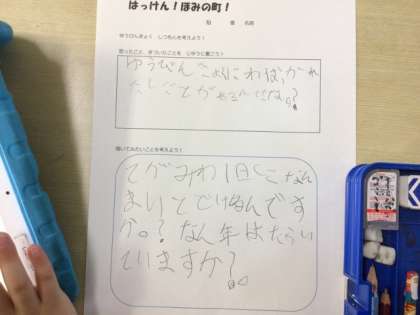 はっけん！ほみの町！
組 番 名前
ゆうびんきょく しつもんを考えよう！
思ったこと、気づいたことを じゆうに書こう？
ゆうびんきょくにわ
たしごとが
聞いてみたいことを考えよう！
てがみわ1日に なん
まいとどけるんです
か。？なん年はたらい
ていますか？